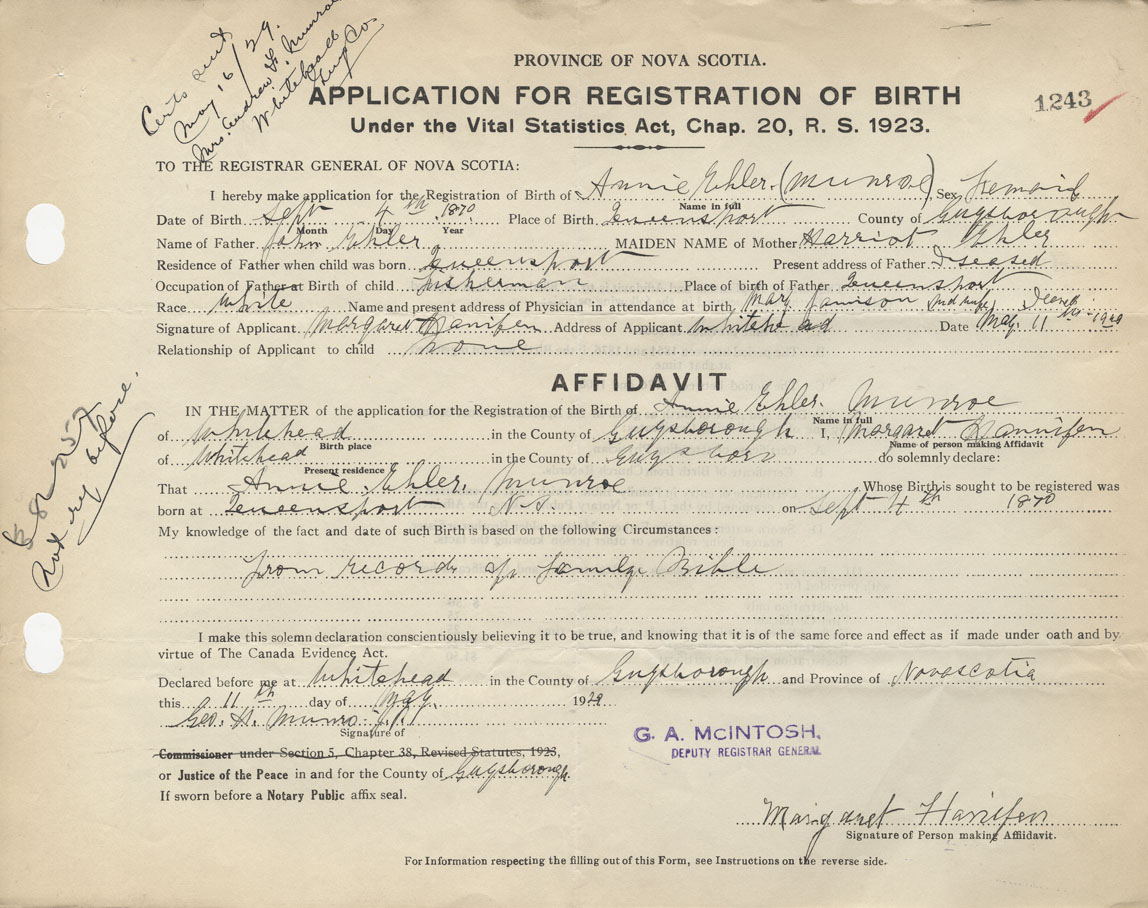 Certs sent
May 16/29.
Mrs. Andrew F. Munroe
Whitehead
Guy Co.
PROVINCE OF NOVA SCOTIA.
APPLICATION FOR REGISTRATION OF BIRTH
Under the Vital Statistics Act, Chap. 20, R. S. 1923.
1243
TO THE REGISTRAR GENERAL OF NOVA SCOTIA:
I hereby make application for the Registration of Birth of Annie Ehler. (Munroe) Sex
Name in full
Date of Birth Sept 4th 1870 Place of Birth Queensport County of Guysborough
Month Day Year
Name of Father John Ehler MAIDEN NAME of Mother Harriot Ehler
Residence of Father when child was born Queensport Present address of Father Diseased
Occupation of Father at Birth of child fisherman Place of birth of Father Queensport
Race White Name and present address of Physician in attendance at birth Mary Jamison
Signature of Applicant Margaret Hanifen Address of Applicant Whitehead Date May 11th 1929
Relationship of Applicant to child None
AFFIDAVIT
IN THE MATTER of the application for the Registration of the Birth of Annie Ehler. Munroe
Name in full
of Whitehead in the County of Guysborough I, Margaret Hannifen
Birth place Name of person making Affidavit
of Whitehead in the County of Guysboro do solemnly declare:
Present residence
That Annie Ehler. Munroe Whose Birth is sought to be registered was
born at Queensport N.S. on Sept 4th 1870
My knowledge of the fact and date of such Birth is based on the following Circumstances:
from records of family Bible
Not reg before.
I make this solemn declaration conscientiously believing it to be true, and knowing that it is of the same force and effect as if made under oath and by
virtue of The Canada Evidence Act.
Declared before me at Whitehead in the County of Guysborough and Province of Novascotia
this 11th day of May. 1929
Geo. H. Munro J.P.
Signature of
Commissioner under Section 5, Chapter 38, Revised Statutes, 1923,
or Justice of the Peace in and for the County of Guysborough.
If sworn before a Notary Public affix seal.
G. A. McINTOSH,
DEPUTY REGISTRAR GENERAL
Margaret Hanifen
Signature of Person making Affidavit.
For Information respecting the filling out of this Form, see Instructions on the reverse side.